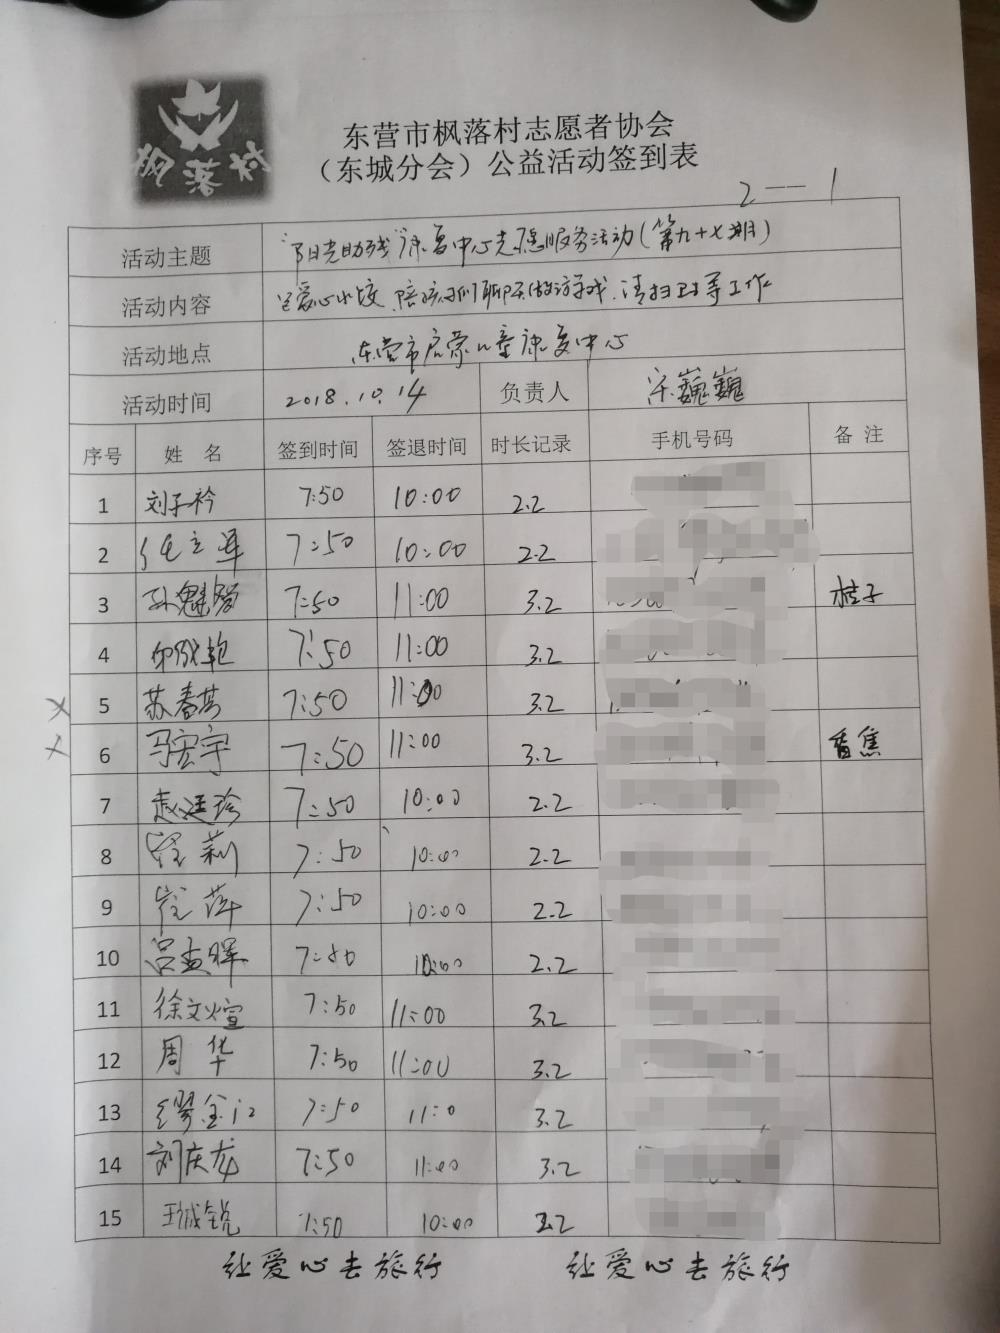 枫落村
东营市枫落村志愿者协会
（东城分会）公益活动签到表
2——1
活动主题 "阳光助残"康复中心志愿服务活动(第九十七期)
活动内容 包爱心水饺、陪孩子们聊天做游戏、清扫卫生等工作
活动地点 东营市启蒙儿童康复中心
活动时间 2018.10.14 负责人 宋巍巍
序号 姓 名 签到时间 签退时间 时长记录 手机号码 备 注
1 刘子衿 7:50 10:00 2.2
2 7:50 10:00 2.2
3 孙魁智 7:50 11:00 3.2 桔子
4 7:50 11:00 3.2
× 5 苏春英 7:50 11:00 3.2
× 6 马宏宇 7:50 11:00 3.2 香焦
7 赵廷珍 7:50 10:00 2.2
8 莉 7:50 10:00 2.2
9 崔萍 7:50 10:00 2.2
10 吕孟晖 7:50 10:00 2.2
11 徐文煊 7:50 11:00 3.2
12 周华 7:50 11:00 3.2
13 缪金 7:50 11:0 3.2
14 刘庆龙 7:50 11:00 3.2
15 王诚锐 7:50 10:00 2.2
让爱心去旅行 让爱心去旅行